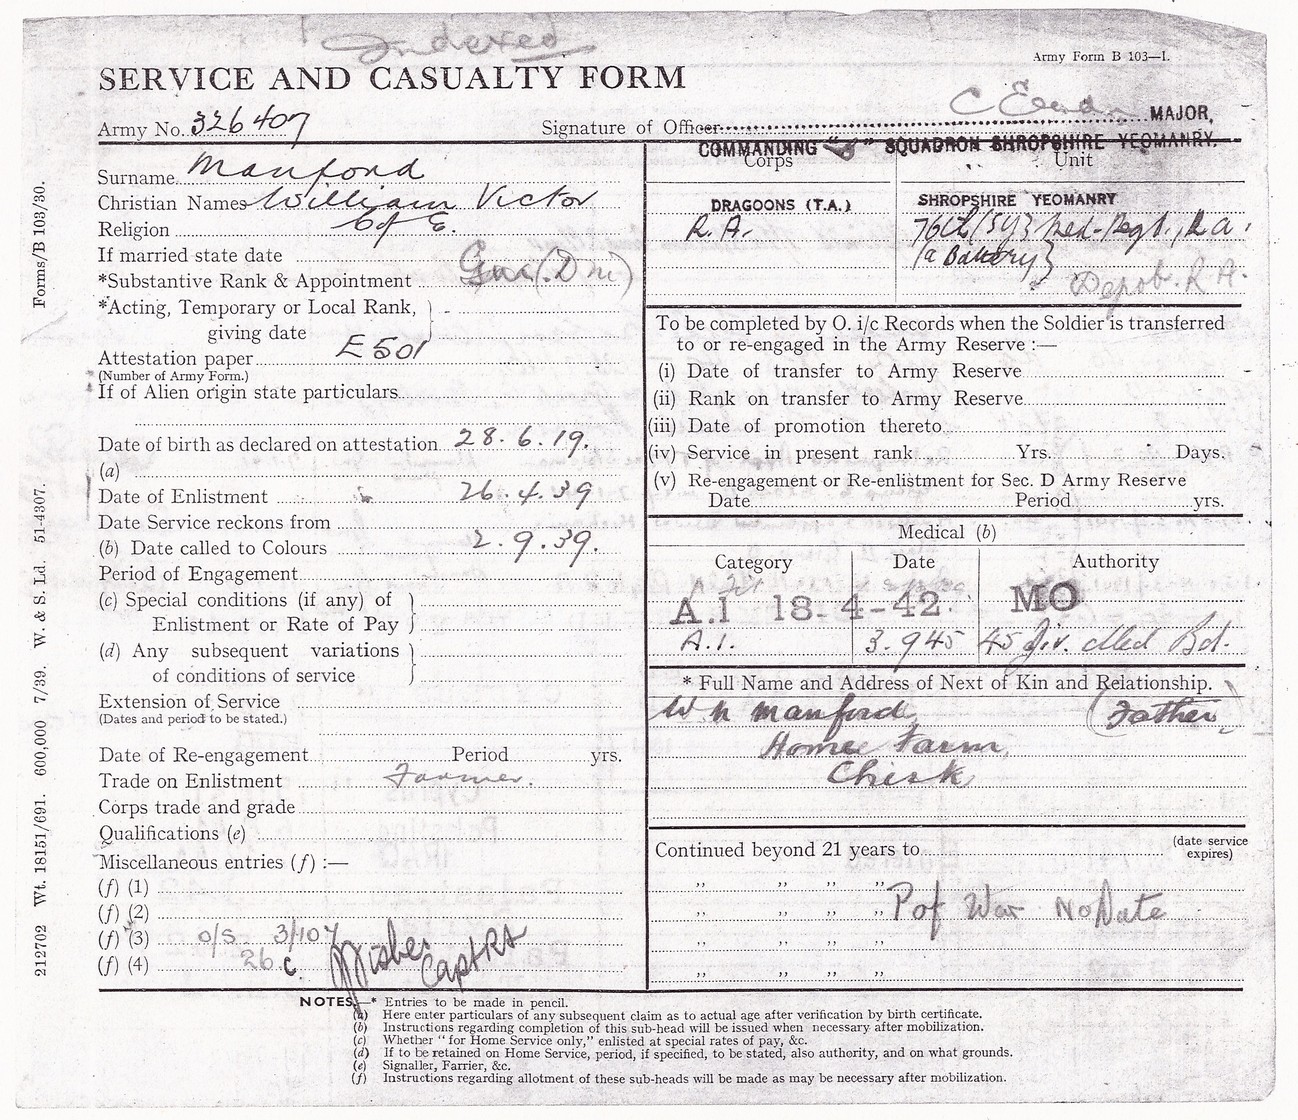 Indexed
Army Form B 103—I.
SERVICE AND CASUALTY FORM
Army No. 326407
Signature of Officer MAJOR,
COMMANDING " " SQUADRON SHROPSHIRE YEOMANRY.
Surname Manford
Christian Names William Victor
Religion C of E.
If married state date
*Substantive Rank & Appointment Gnr (D mi)
*Acting, Temporary or Local Rank,
giving date
Attestation paper E 501
(Number of Army Form.)
If of Alien origin state particulars
Date of birth as declared on attestation 28.6.19.
(a)
Date of Enlistment 26.4.39
Date Service reckons from
(b) Date called to Colours 2.9.39.
Period of Engagement
(c) Special conditions (if any) of
Enlistment or Rate of Pay
(d) Any subsequent variations
of conditions of service
Extension of Service
(Dates and period to be stated.)
Date of Re-engagement Period yrs.
Trade on Enlistment Farmer.
Corps trade and grade
Qualifications (e)
Miscellaneous entries (f) :—
(f) (1)
(f) (2)
(f) (3) O/S 3/107
(f) (4) 26 c. Capt RA
Corps Unit
DRAGOONS (T.A.) SHROPSHIRE YEOMANRY
R.A. 76th (SY) Med-Regt., R.A.
(A Battery)
Depot. R A.
To be completed by O. i/c Records when the Soldier is transferred
to or re-engaged in the Army Reserve :—
(i) Date of transfer to Army Reserve
(ii) Rank on transfer to Army Reserve
(iii) Date of promotion thereto
(iv) Service in present rank Yrs. Days.
(v) Re-engagement or Re-enlistment for Sec. D Army Reserve
Date Period yrs.
Medical (b)
Category Date Authority
A.I 18-4-42. MO
A.1. 3.9 45 45 Div. Med Bd.
* Full Name and Address of Next of Kin and Relationship.
W H Manford (Father)
Home Farm,
Chirk
Continued beyond 21 years to (date service
expires)
,, ,, ,, ,,
,, ,, ,, ,, P of War No Date
,, ,, ,, ,,
,, ,, ,, ,,
NOTES.—* Entries to be made in pencil.
(a) Here enter particulars of any subsequent claim as to actual age after verification by birth certificate.
(b) Instructions regarding completion of this sub-head will be issued when necessary after mobilization.
(c) Whether "for Home Service only," enlisted at special rates of pay, &c.
(d) If to be retained on Home Service, period, if specified, to be stated, also authority, and on what grounds.
(e) Signaller, Farrier, &c.
(f) Instructions regarding allotment of these sub-heads will be made as may be necessary after mobilization.
212702 Wt. 18151/691. 600,000 7/39. W. & S. Ld. 51-4307. Forms/B 103/30.